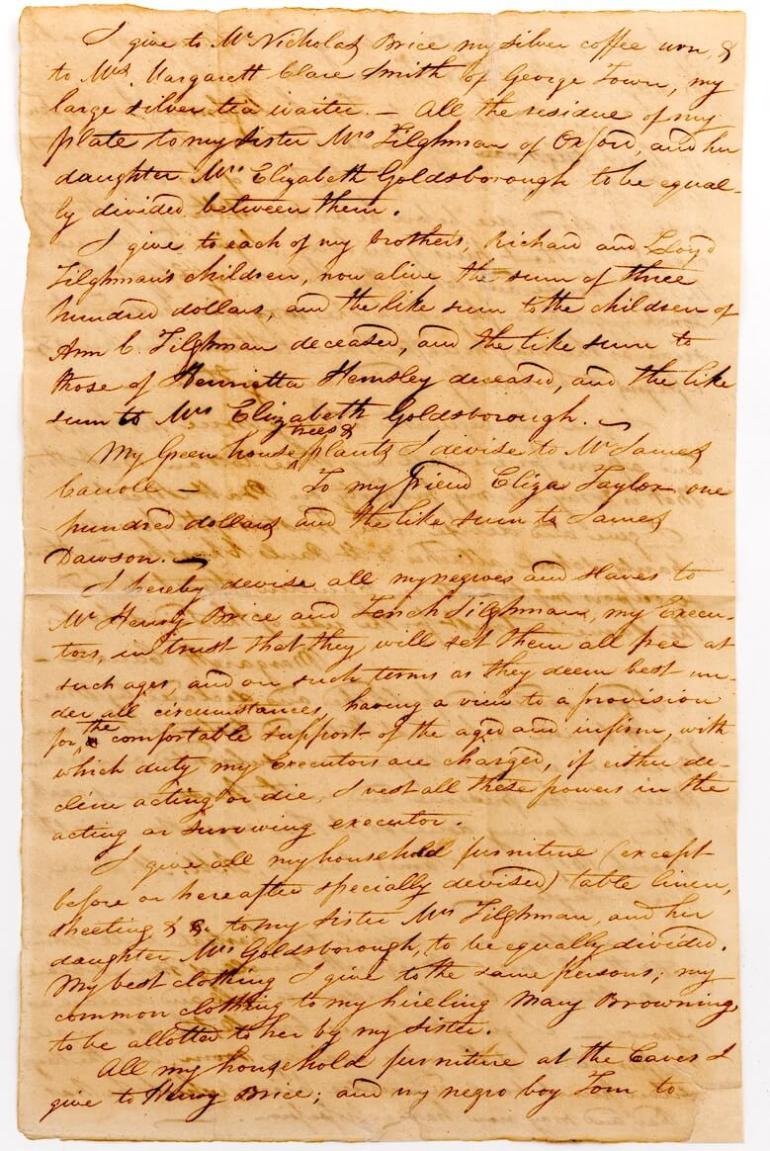 I give to Mr Nicholas Brice my silver coffee urn, &
to Mrs. Margarett Clare Smith of George Town, my
large silver tea waiter. — All the residue of my
plate to my sister Mrs Tilghman of Oxford, and her
daughter Mrs Elizabeth Goldsborough to be equal-
ly divided between them.
I give to each of my brothers, Richard and Lloyd
Tilghman's children, now alive the sum of three
hundred dollars, and the like sum to the children of
Ann C. Tilghman deceased, and the like sum to
those of Henrietta Hemsley deceased, and the like
sum to Mrs Elizabeth Goldsborough. —
trees &
My Green house plants I devise to Mr James
Carroll — To my friend Eliza Taylor one
hundred dollars and the like sum to James
Dawson. —
I hereby devise all my negroes and slaves to
Mr Henry Brice and Tench Tilghman, my Execu-
tors, in trust that they will set them all free at
such ages, and on such terms as they deem best un-
der all circumstances, having a view to a provision
for, the comfortable support of the aged and infirm, with
which duty my Executors are charged, if either de-
cline acting or die, I vest all these powers in the
acting or surviving executor.
I give all my household furniture (except
before or hereafter specially devised) table linen,
sheeting & c. to my sister Mrs Tilghman, and her
daughter Mrs Goldsborough, to be equally divided.
My best clothing I give to the same persons; my
common clothing to my hireling Mary Browning,
to be allotted to her by my sister.
All my household furniture at the Caves I
give to Henry Brice; and my negro boy Tom to